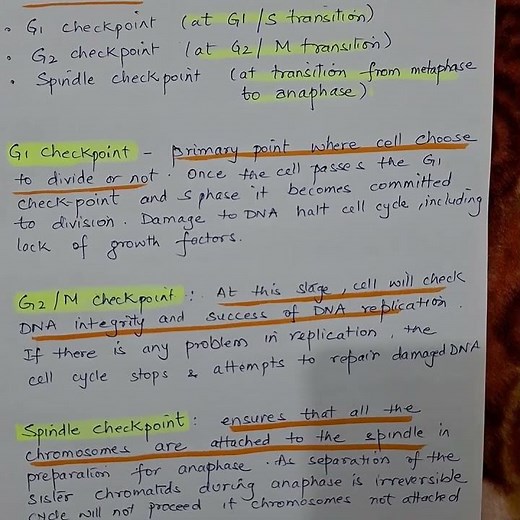 • G1 checkpoint (at G1/S transition)
• G2 checkpoint (at G2/M transition)
• Spindle checkpoint (at transition from metaphase
to anaphase)
G1 checkpoint - primary point where cell choose
to divide or not. Once the cell passes the G1
check-point and S phase it becomes committed
to division. Damage to DNA halt cell cycle, including
lack of growth factors.
G2/M checkpoint: At this stage, cell will check
DNA integrity and success of DNA replication.
If there is any problem in replication, the
cell cycle stops & attempts to repair damaged DNA
Spindle checkpoint: ensures that all the
chromosomes are attached to the spindle in
preparation for anaphase. As separation of the
sister chromatids during anaphase is irreversible
cycle will not proceed if chromosomes not attached